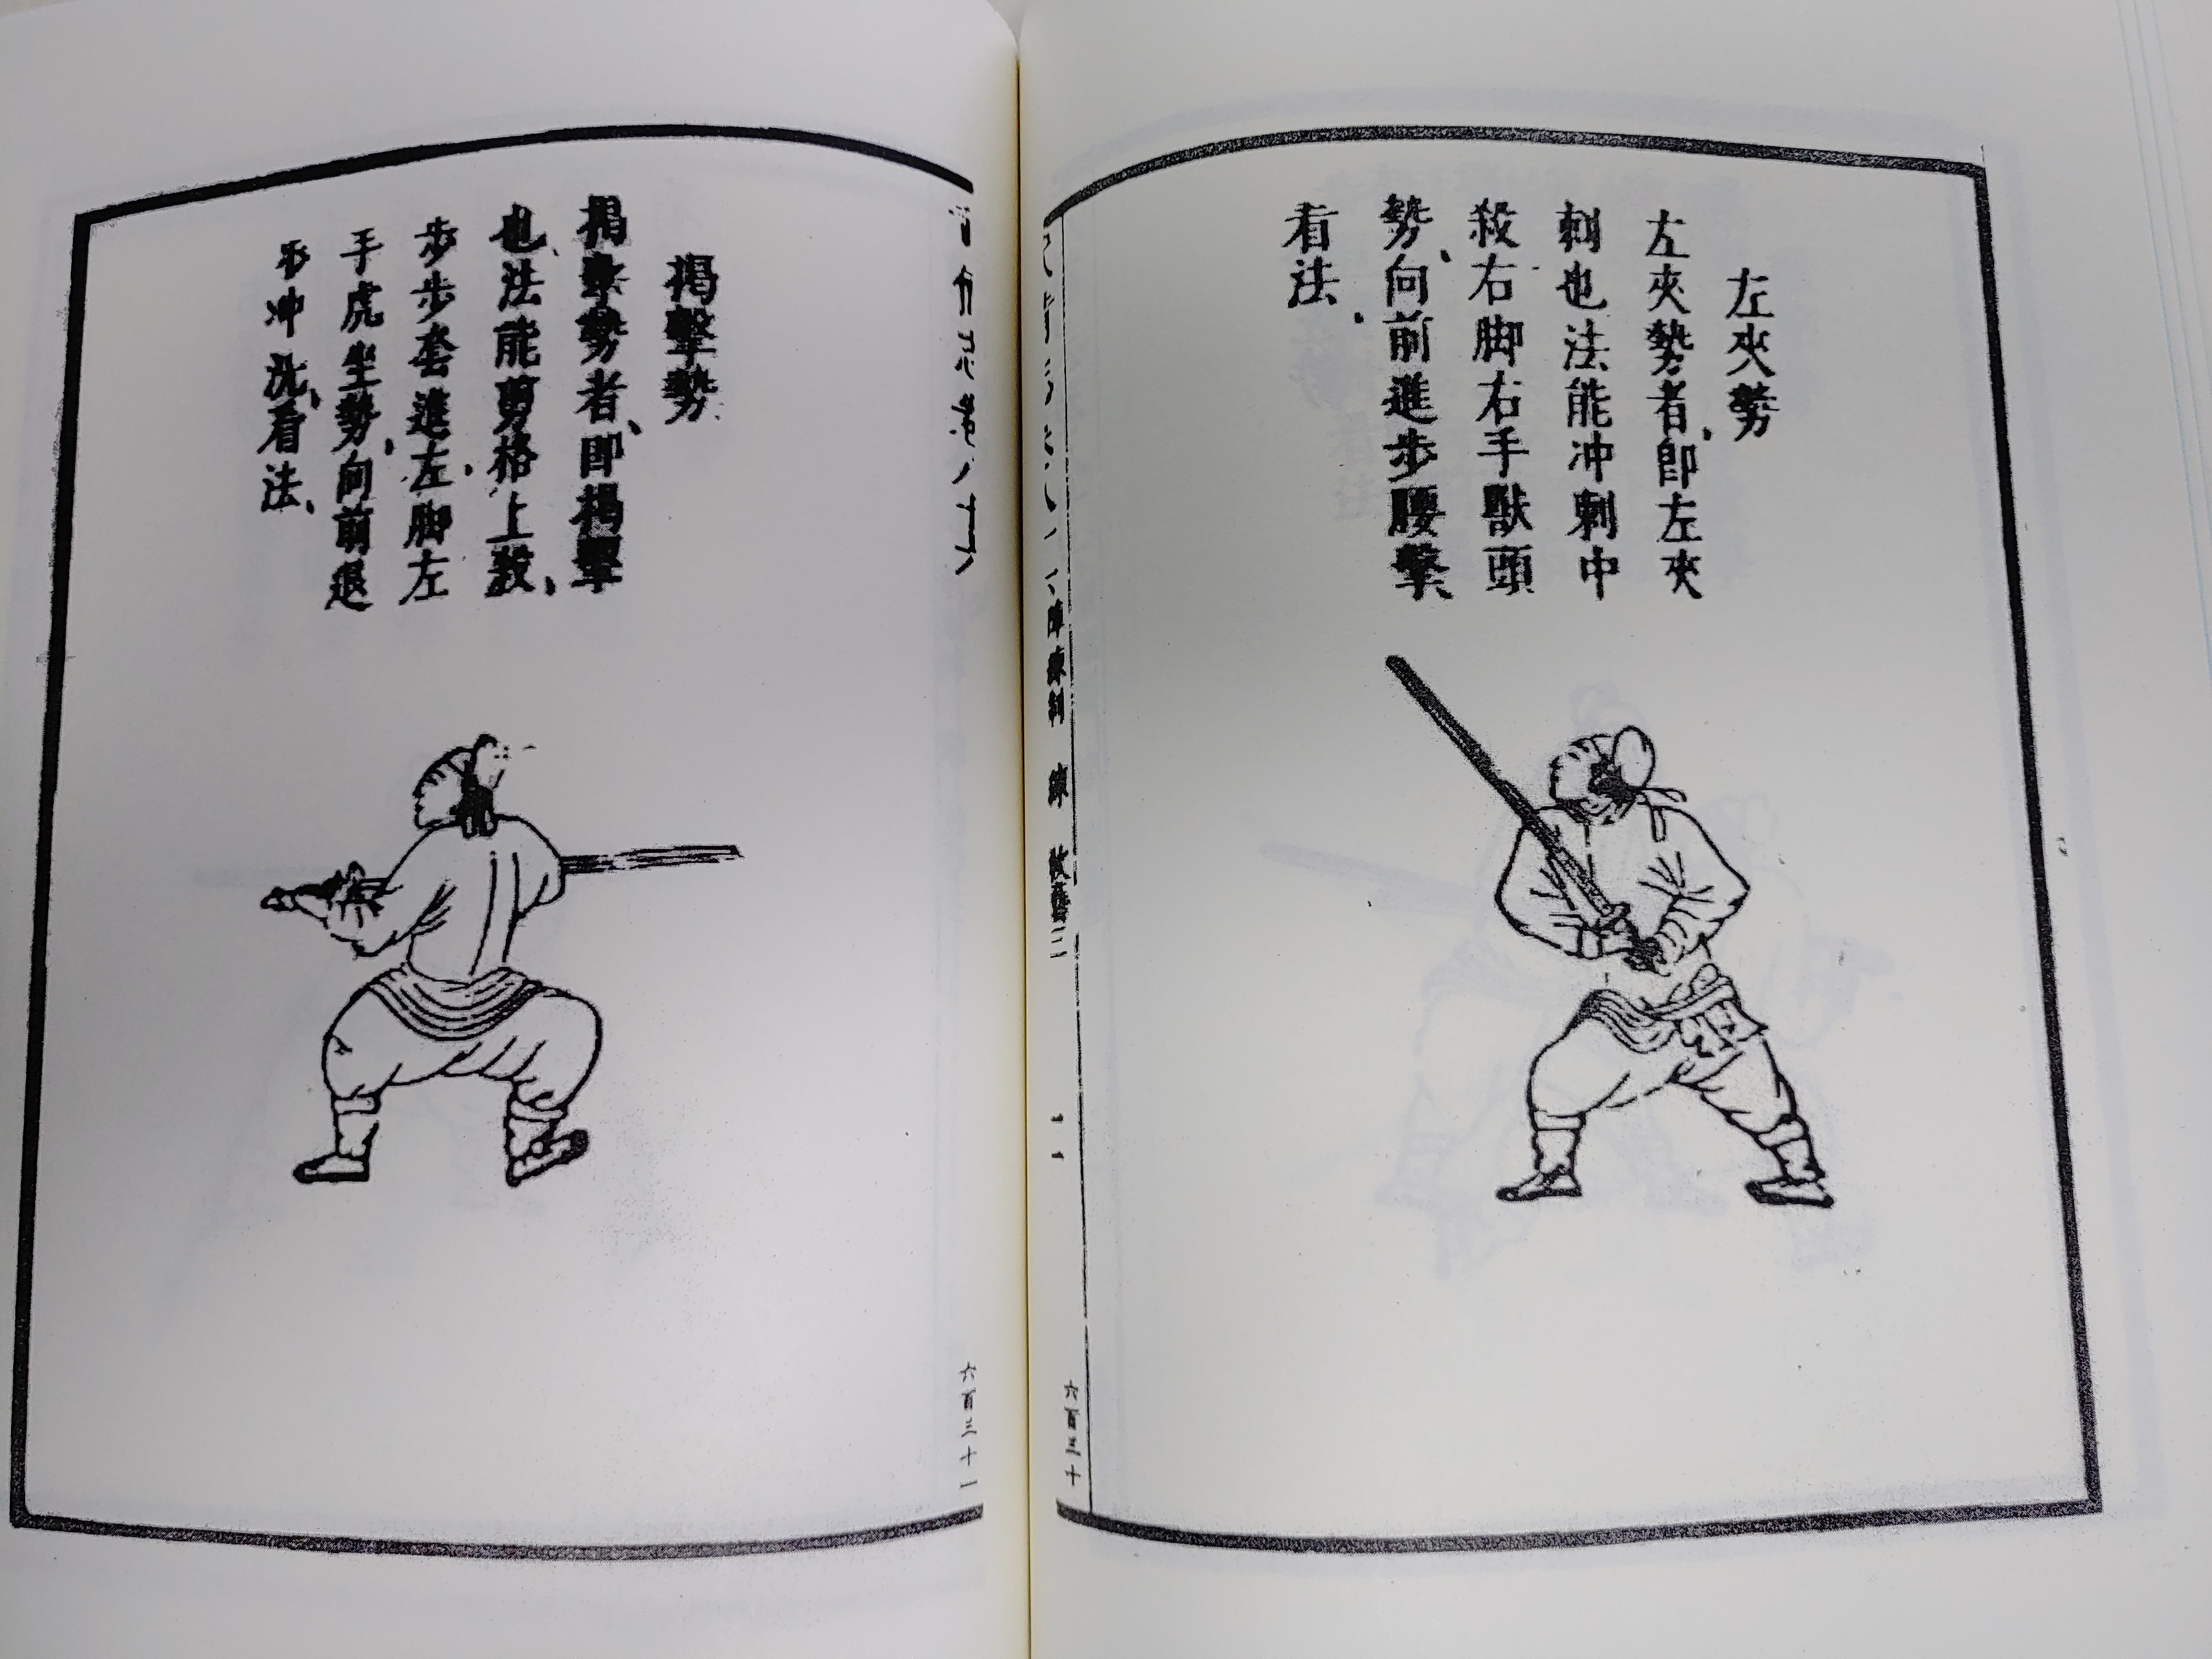 左夾勢
左夾勢者、卽左夾
刺也法能冲刺中
殺右脚右手獸頭
勢、向前進步腰擊
看法、
陣練制 練 敎藝三
六百三十
揭擊勢
揭擊勢者、卽揭擊
也、法能剪格上殺、
步步套進、左脚左
手虎坐勢、向前退
步冲洗、看法、
六百三十一